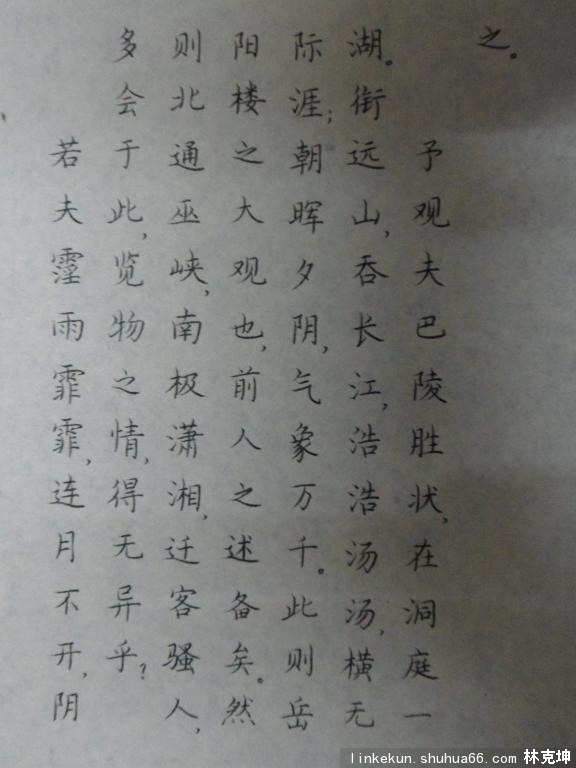 之。
予观夫巴陵胜状,在洞庭一
湖。衔远山,吞长江,浩浩汤汤,横无
际涯;朝晖夕阴,气象万千。此则岳
阳楼之大观也,前人之述备矣。然
则北通巫峡,南极潇湘,迁客骚人,
多会于此,览物之情,得无异乎?
若夫霪雨霏霏,连月不开,阴
linkekun.shuhua66.com 林克坤